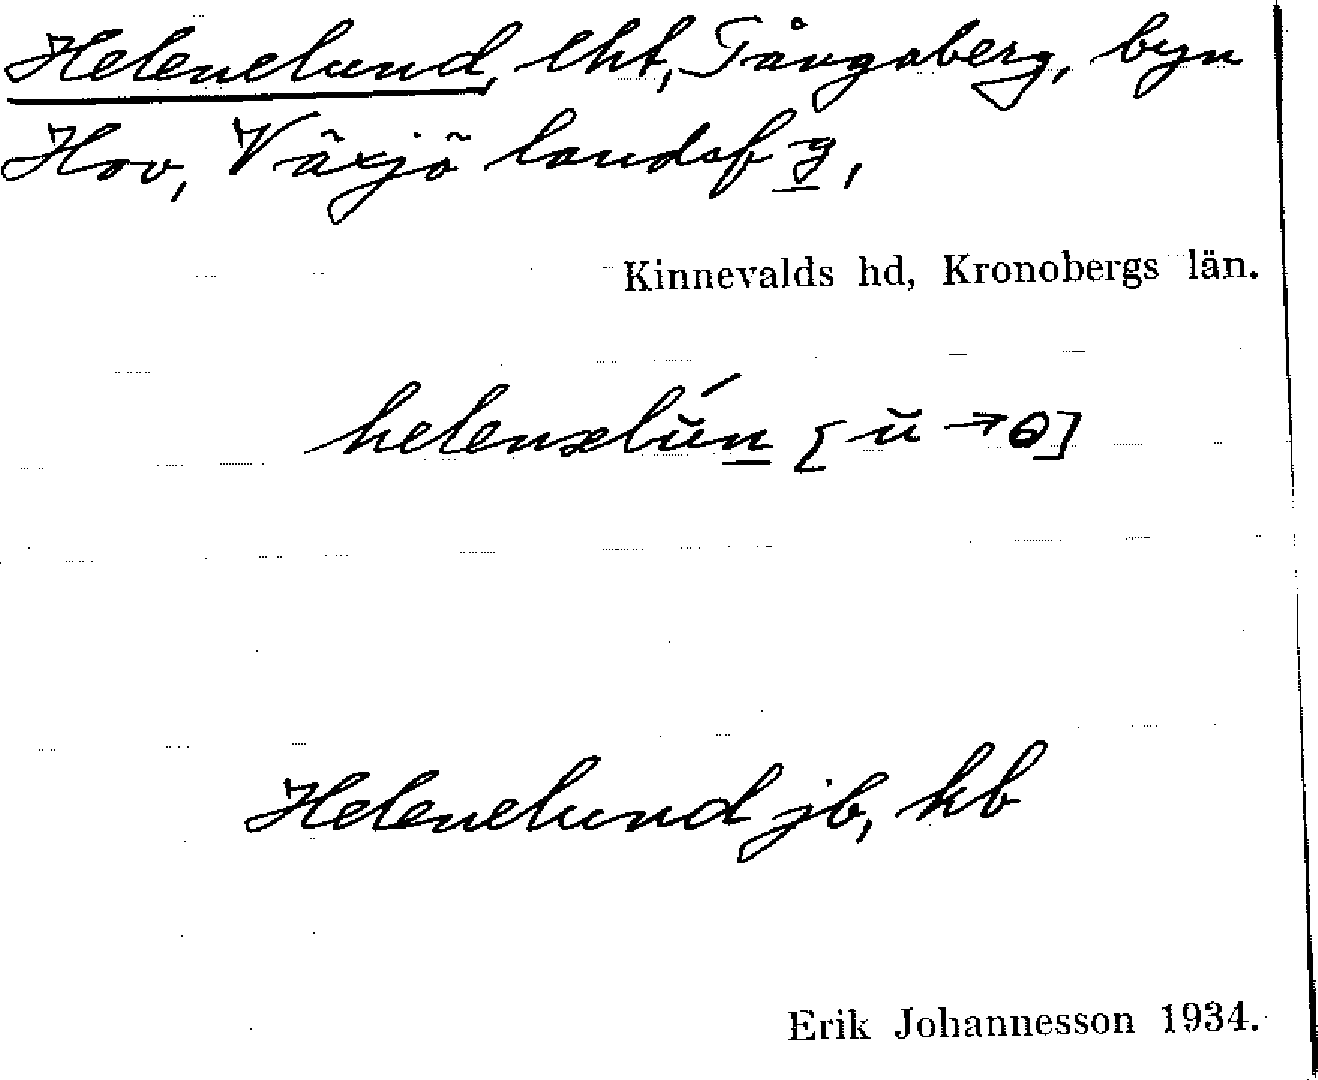 Helenelund, lht, Tångaberg, byn
Hov, Växjö landsf g,
Kinnevalds hd, Kronobergs län.
helenəlŭ́n [ŭ → ɵ]
Helenelund jb, kb
Erik Johannesson 1934.